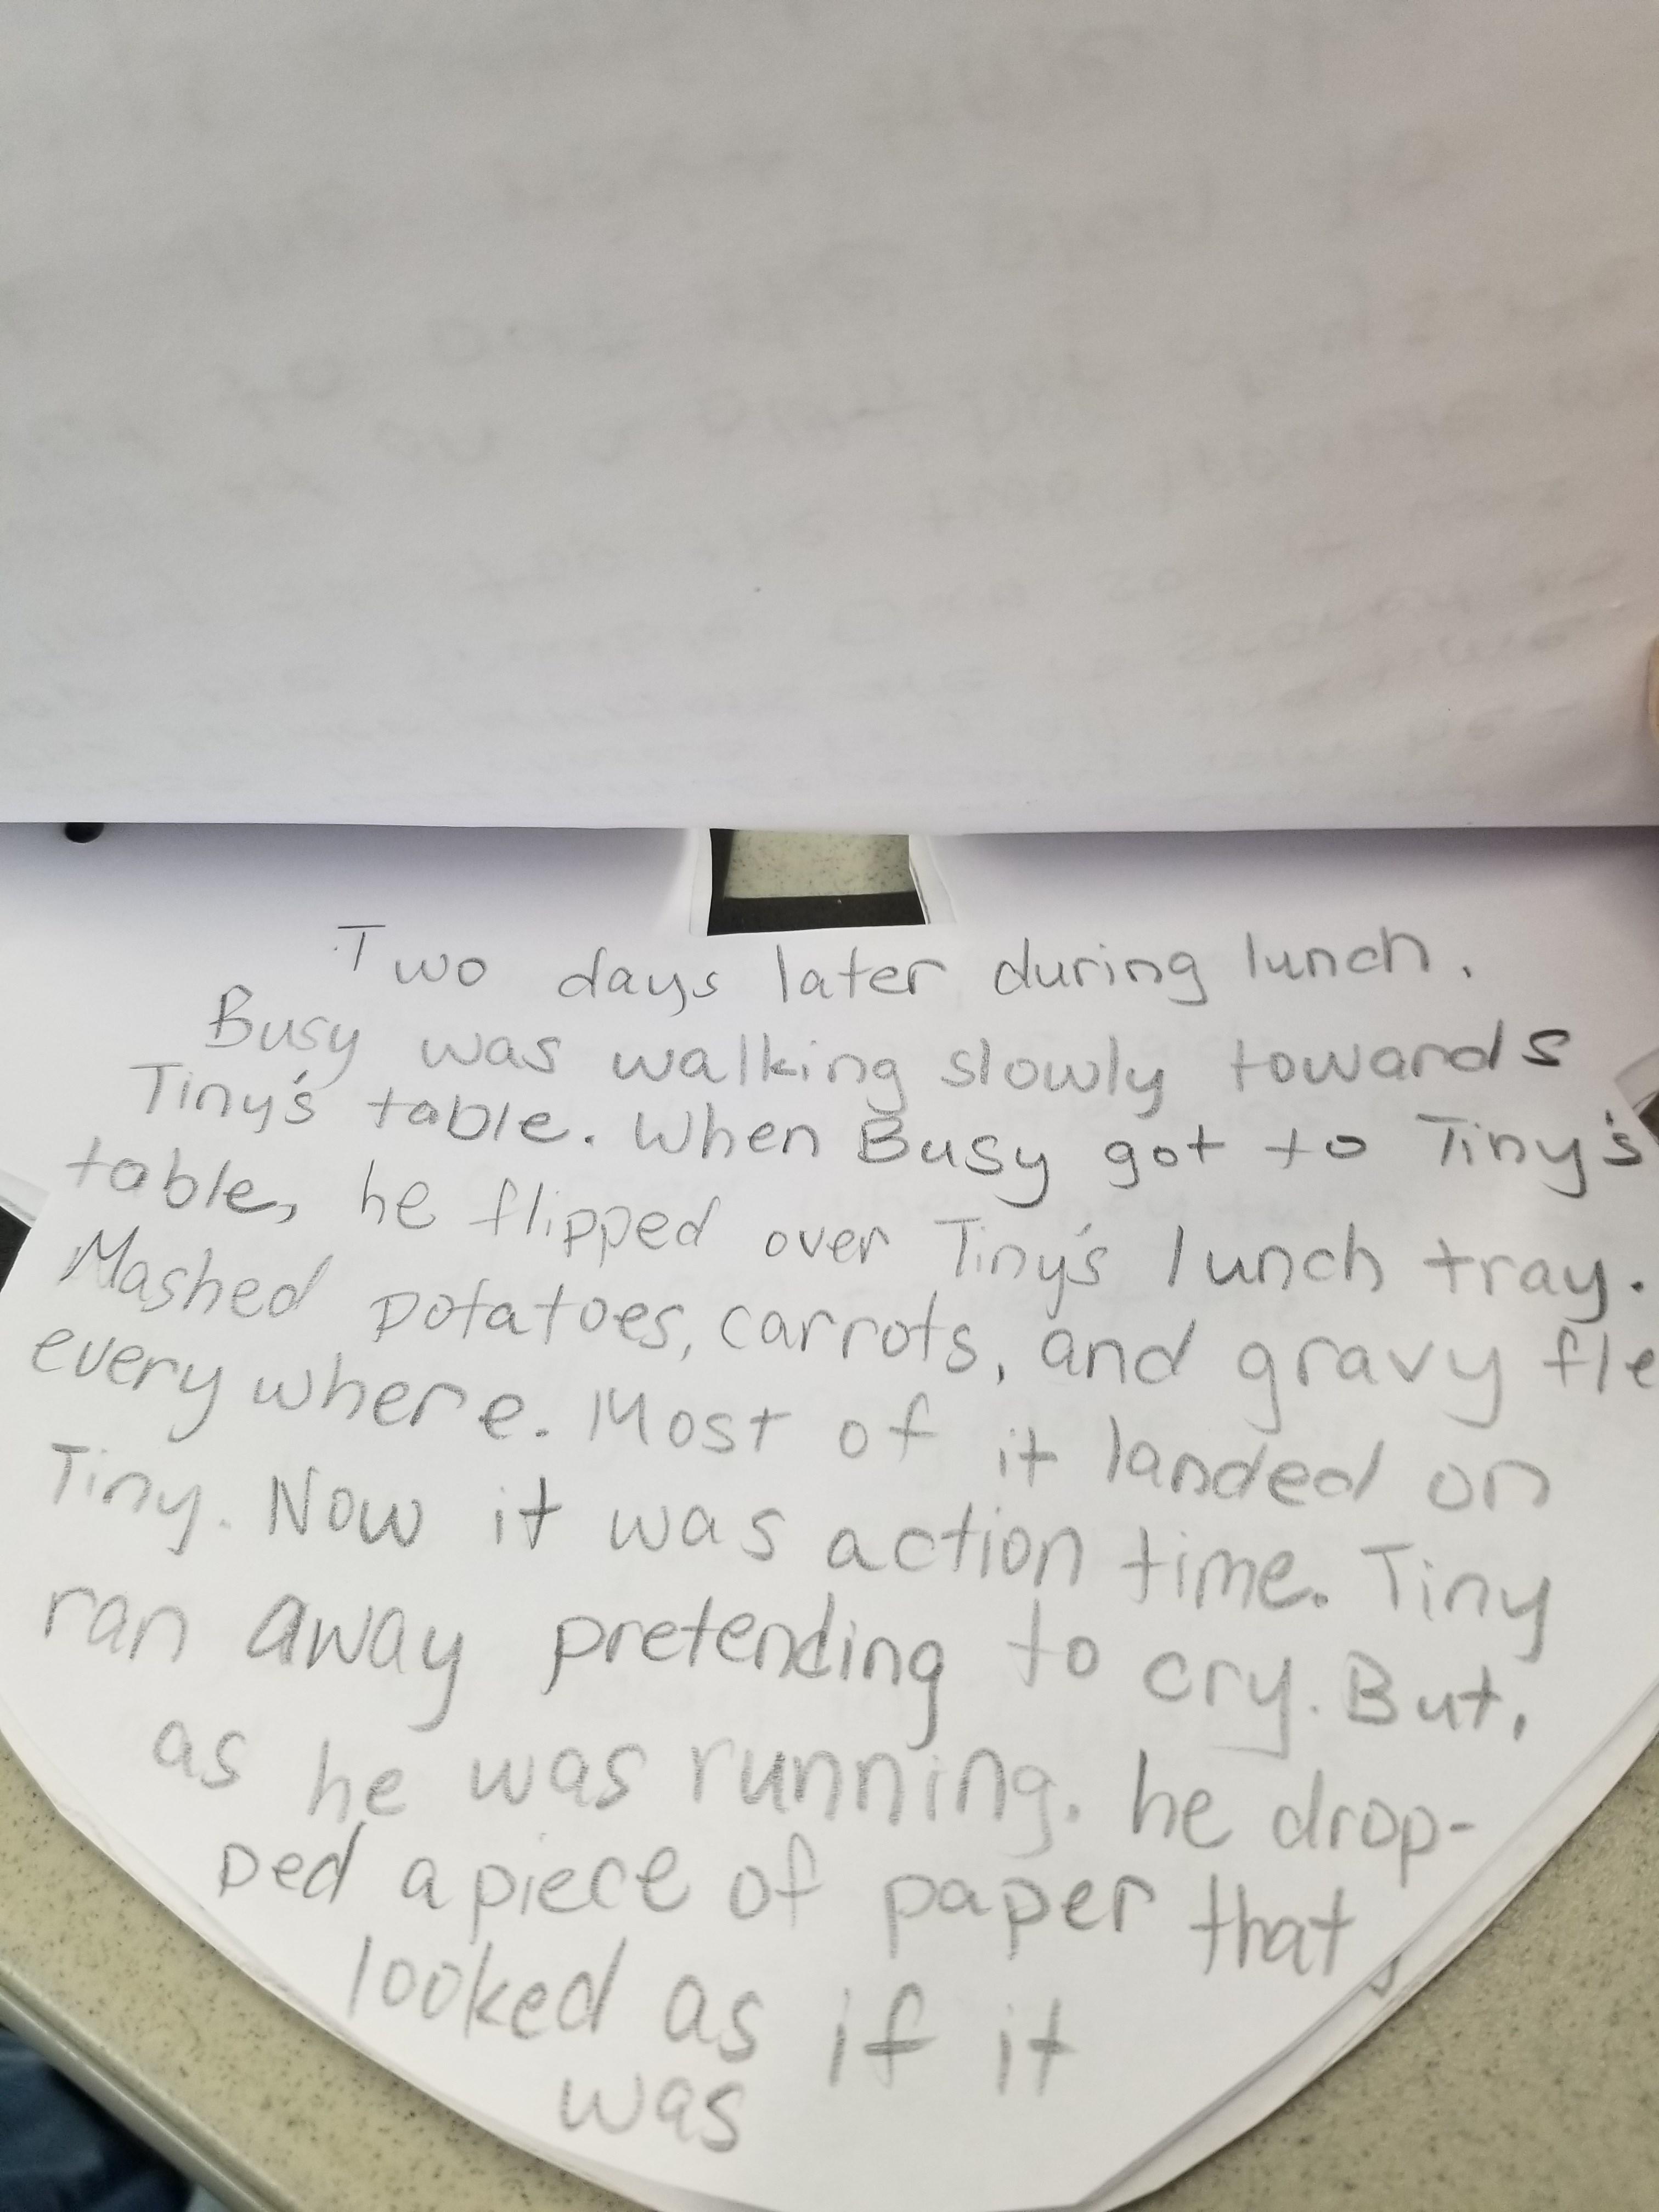 Two days later during lunch.
Busy was walking slowly towards
Tiny's table. When Busy got to Tiny's
table, he flipped over Tiny's lunch tray.
Mashed potatoes, carrots, and gravy fle
every where. Most of it landed on
Tiny. Now it was action time. Tiny
ran away pretending to cry. But,
as he was running. he drop-
ped a piece of paper that
looked as if it
was